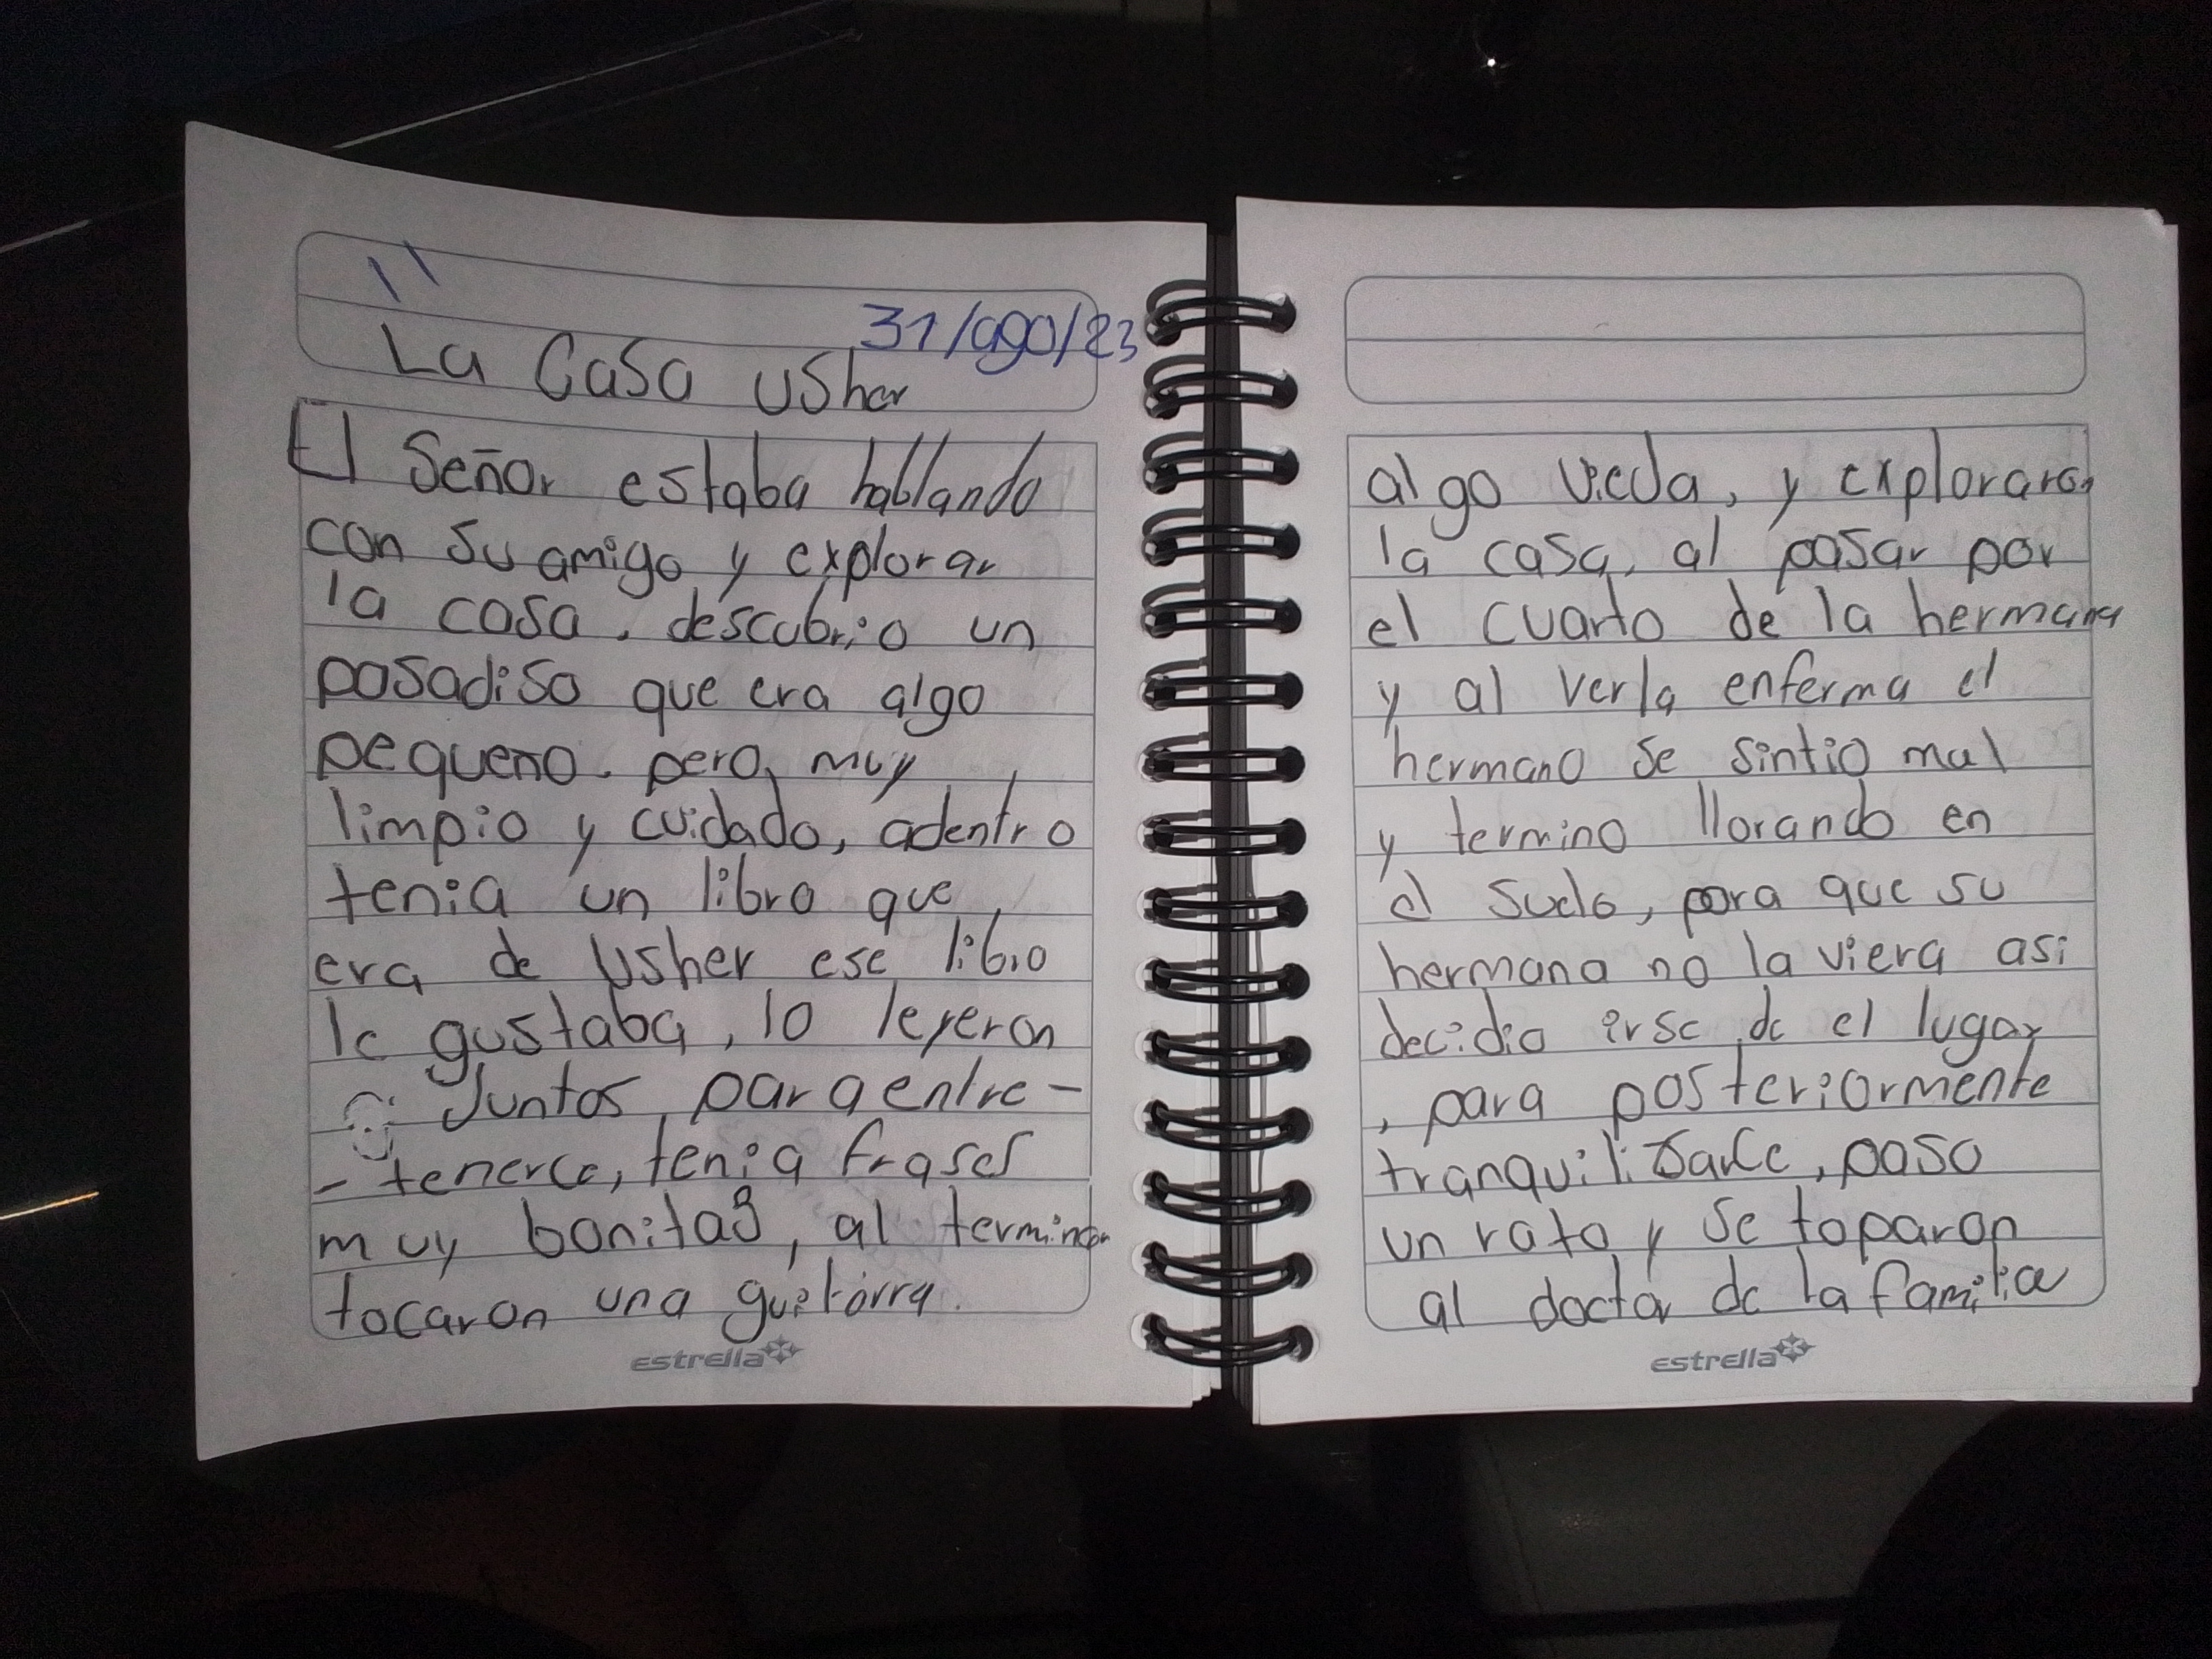 31/ago/23
La Casa Usher
El Señor estaba hablando
con su amigo y explorar
la casa, descubrio un
pasadiso que era algo
pequeño. pero, muy
limpio y cuidado, adentro
tenia un libro que
era de Usher ese libro
le gustaba, lo leyeron
Juntos, para entre-
- tenerce, tenia frases
muy bonitas, al terminar
tocaron una guitarra.
estrella
algo vieja, y exploraron
la casa, al pasar por
el cuarto de la hermana
y al verla enferma el
hermano se sintio mal
y termino llorando en
el suelo, para que su
hermana no la viera asi
decidio irse de el lugar
, para posteriormente
tranquilisarce, paso
un rato y se toparon
al doctor de la familia
estrella